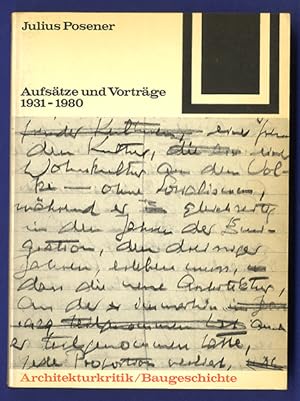 Julius Posener
Aufsätze und Vorträge
1931-1980
eine
den Kultur, die
Wohnkultur an dem Vol-
ke — ohne Sozialismus,
während er gleichzeitig
in den Jahren der Emi-
gration, den dreissiger
Jahren, erleben muss,
dass die neue Architektur,
an der er immerhin
teilgenommen hatte,
jede Proportion verliert,
Architekturkritik/Baugeschichte